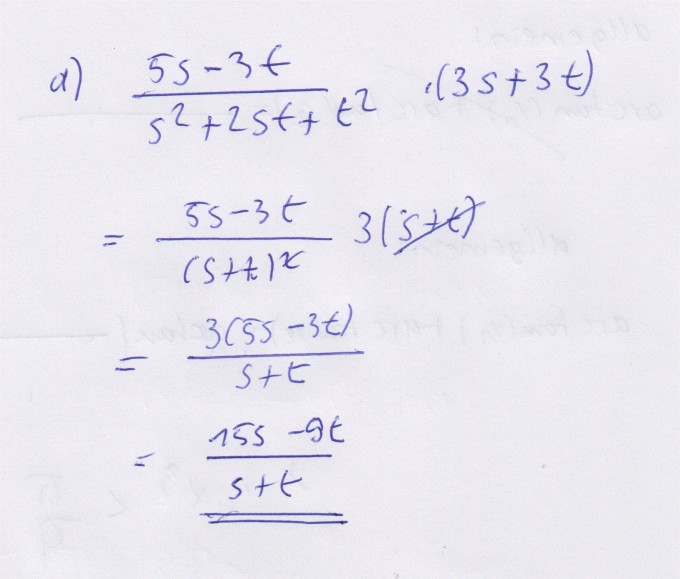 a) (5s-3t)/(s²+2st+t²) ·(3s+3t)
= (5s-3t)/(s+t)² 3(s+t)
= 3(5s-3t)/(s+t)
= (15s-9t)/(s+t)